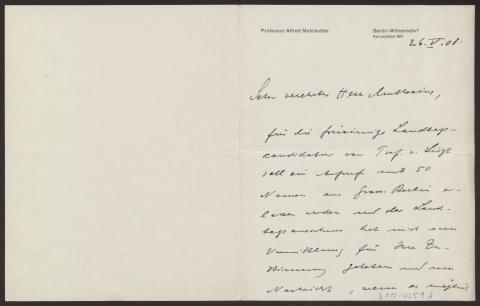 Professor Alfred Mohrbutter
Berlin-Wilmersdorf
26. V. 08.
Sehr verehrter Herr Muthesius,
für die freisinnige Landtags-
candidatur von Prof. v. Liszt
soll ein Aufruf mit 50
Namen aus Gross-Berlin er-
lassen werden und der Land-
tagsausschuss hat mich um
Vermittlung für Ihre Zu-
stimmung gebeten und um
Nachricht, wenn es möglich